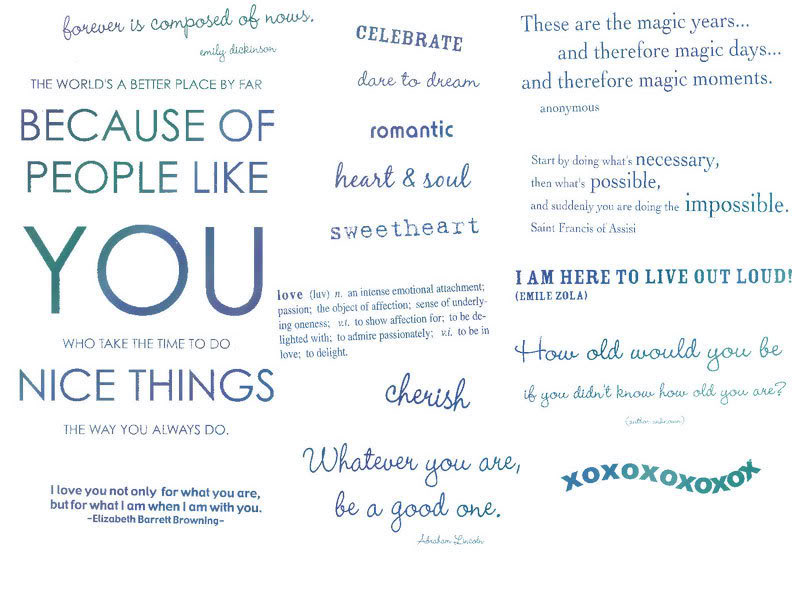 forever is composed of nows.
emily dickinson
THE WORLD'S A BETTER PLACE BY FAR
BECAUSE OF
PEOPLE LIKE
YOU
WHO TAKE THE TIME TO DO
NICE THINGS
THE WAY YOU ALWAYS DO.
I love you not only for what you are,
but for what I am when I am with you.
-Elizabeth Barrett Browning-
CELEBRATE
dare to dream
romantic
heart & soul
sweetheart
love (luv) n. an intense emotional attachment;
passion; the object of affection; sense of underly-
ing oneness; v.t. to show affection for; to be de-
lighted with; to admire passionately; v.i. to be in
love; to delight.
cherish
Whatever you are,
be a good one.
Abraham Lincoln
These are the magic years...
and therefore magic days...
and therefore magic moments.
anonymous
Start by doing what's necessary,
then what's possible,
and suddenly you are doing the impossible.
Saint Francis of Assisi
I AM HERE TO LIVE OUT LOUD!
(EMILE ZOLA)
How old would you be
if you didn't know how old you are?
(author unknown)
xoxoxoxoxox